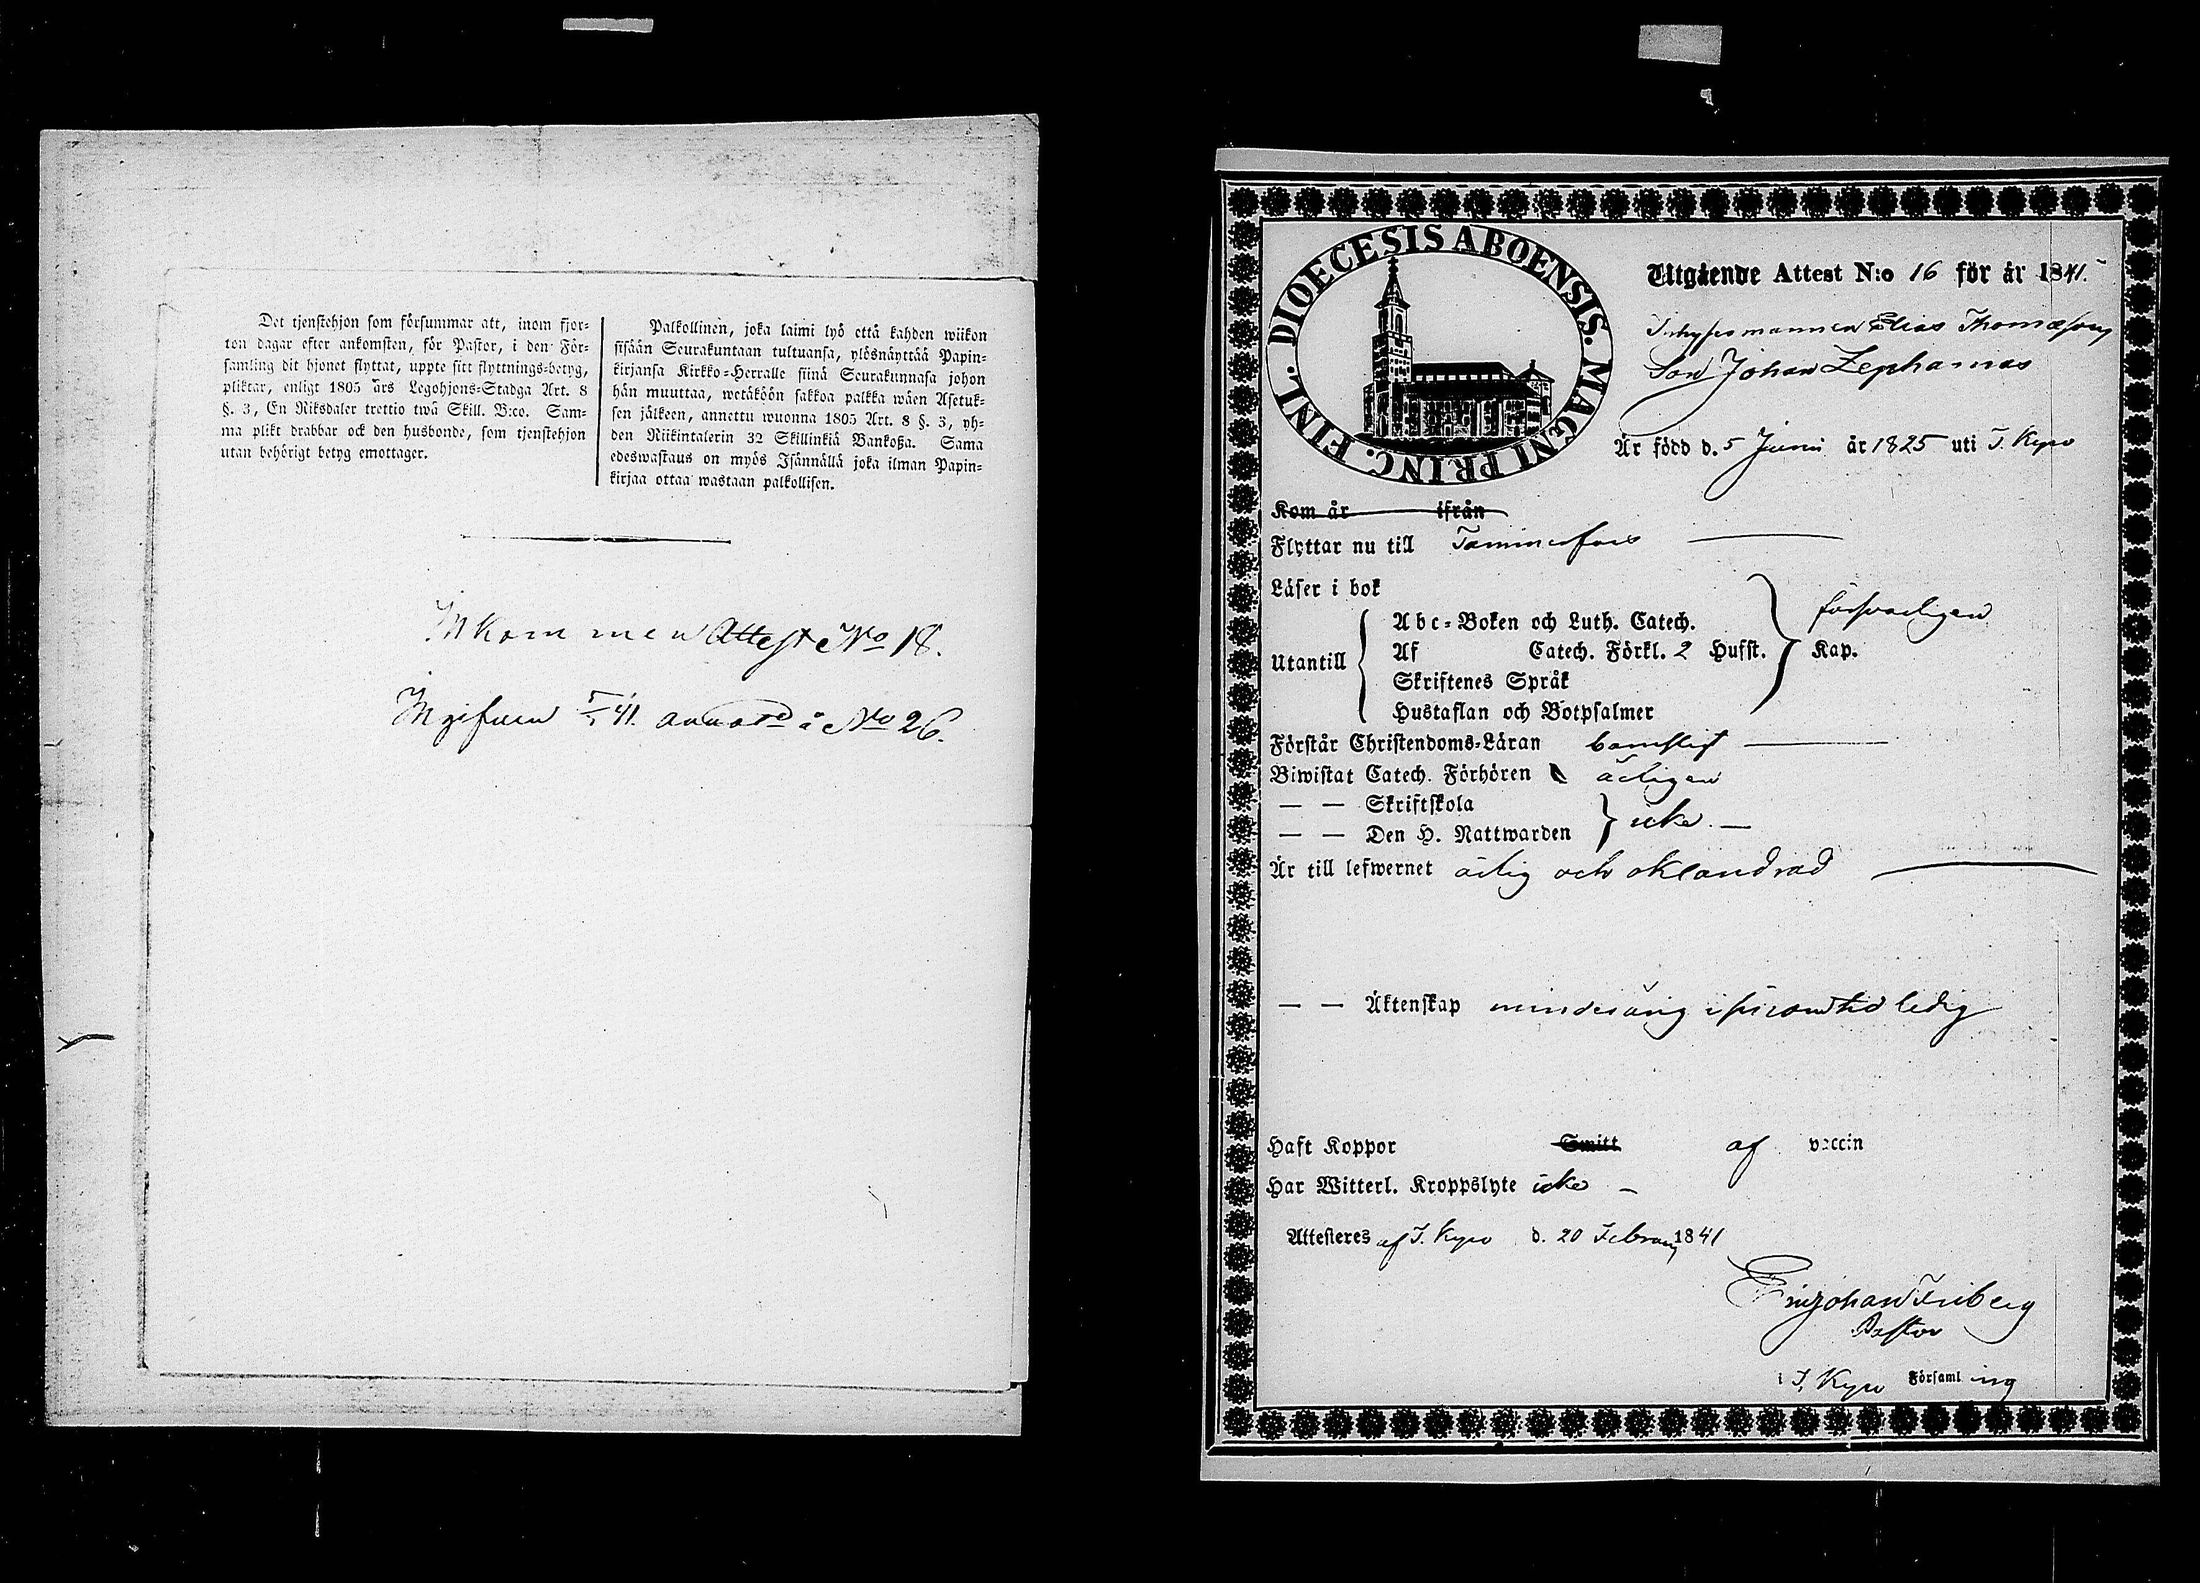 Det tjenstehjon som försummar att, inom fjor-
ton dagar efter ankomsten, för Pastor, i den För-
samling dit hjonet flyttat, uppte sitt flyttnings-betyg,
pliktar, enligt 1805 års Legohjons-Stadga Art. 8
§. 3, En Riksdaler trettio twå Skill. B:co. Sam-
ma plikt drabbar ock den husbonde, som tjenstehjon
utan behörigt betyg emottager.
Palkollinen, joka laimi lyö että kahden wiikon
sisään Seurakuntaan tultuansa, ylösnäyttää Papin-
kirjansa Kirkko-Herralle siinä Seurakunnasa johon
hän muuttaa, wetäköön sakkoa palkka wäen Asetuk-
sen jälkeen, annettu wuonna 1805 Art. 8 §. 3, yh-
den Riikintalerin 32 Skillinkiä Bankoßa. Sama
edeswastaus on myös Isännällä joka ilman Papin-
kirjaa ottaa wastaan palkollisen.
Inkommen Attest No 18.
Ingifven 41. å No 26.
DIOECESIS ABOENSIS. MAGNI PRINC. FINL.
Utgående Attest N:o 16 för år 1841.
Elias Thomæsons
Son Johan Zephanias
Är född d. 5 Junii år 1825 uti T. Kyro
Kom år ifrån
Flyttar nu till Tammerfors
Läser i bok försvarligen
Utantill
Abc-Boken och Luth. Catech.
Af Catech. Förkl. 2 Hufst. Kap.
Skriftenes Språk
Hustaflan och Botpsalmer
Förstår Christendoms-Läran barnsligt
Biwistat Catech. Förhören årligen
— — Skriftskola
— — Den H. Nattwarden icke
Är till lefwernet ärlig och oklandrad
— — Äktenskap minderårig ledig
Haft Koppor Smitt af vaccin
Har Witterl. Kroppslyte icke
Attesteres af T. Kyro d. 20 Februarij 1841
Johan Friberg
Pastor
i T. Kyro Församling